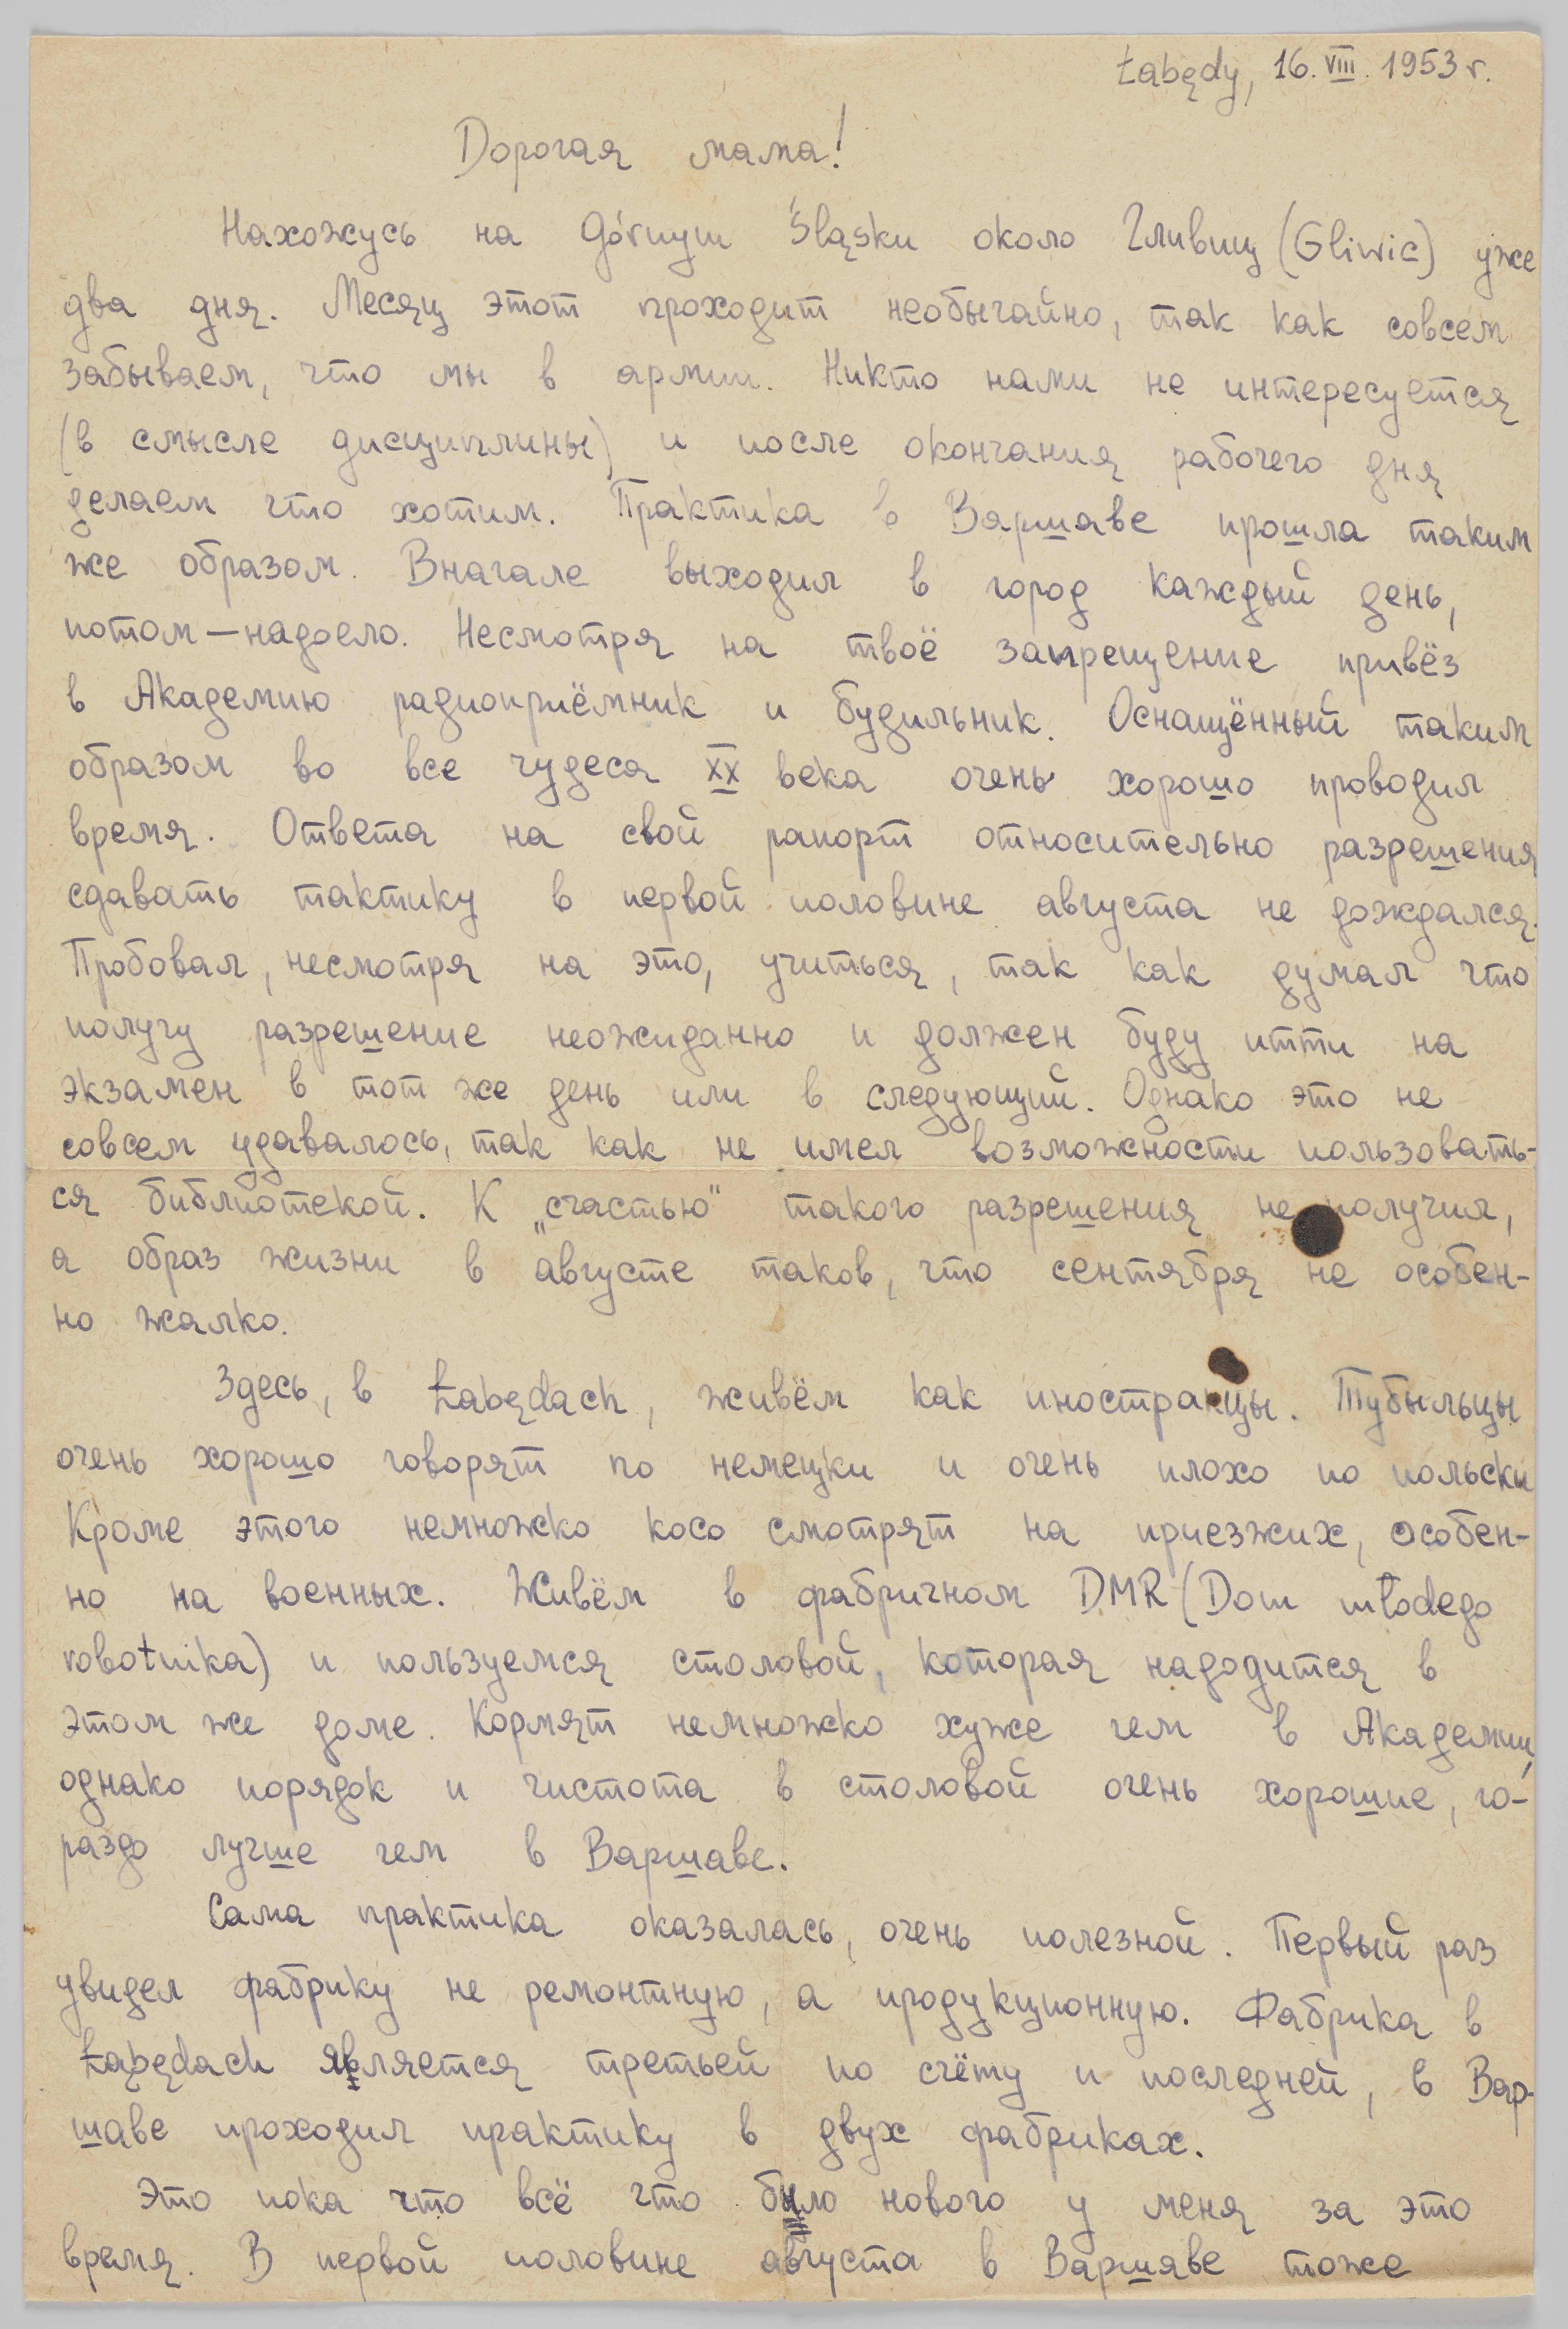 Łabędy, 16.VIII.1953 г.
Дорогая мама!
Нахожусь на Górnym Śląsku около Гливиц (Gliwic) уже
два дня. Месяц этот проходит необычайно, так как совсем
забываем, что мы в армии. Никто нами не интересуется
(в смысле дисциплины) и после окончания рабочего дня
делаем что хотим. Практика в Варшаве прошла таким
же образом. Вначале выходил в город каждый день,
потом — надоело. Несмотря на твоё запрещение привёз
в Академию радиоприёмник и будильник. Оснащённый таким
образом во все чудеса XX века очень хорошо проводил
время. Ответа на свой рапорт относительно разрешения
сдавать тактику в первой половине августа не дождался.
Пробовал, несмотря на это, учиться, так как думал что
получу разрешение неожиданно и должен буду итти на
экзамен в тот же день или в следующий. Однако это не
совсем удавалось, так как не имел возможности пользовать-
ся библиотекой. К „счастью" такого разрешения не получил,
а образ жизни в августе таков, что сентября не особен-
но жалко.
Здесь, в Łabędach, живём как иностранцы. Тубыльцы
очень хорошо говорят по немецки и очень плохо по польски
Кроме этого немножко косо смотрят на приезжих, особен-
но на военных. Живём в фабричном DMR (Dom młodego
robotnika) и пользуемся столовой, которая находится в
этом же доме. Кормят немножко хуже чем в Академии,
однако порядок и чистота в столовой очень хорошие, го-
раздо лучше чем в Варшаве.
Сама практика оказалась, очень полезной. Первый раз
увидел фабрику не ремонтную, а продукционную. Фабрика в
Łabędach является третьей по счёту и последней, в Вар-
шаве проходил практику в двух фабриках.
Это пока что всё что было нового у меня за это
время. В первой половине августа в Варшаве тоже